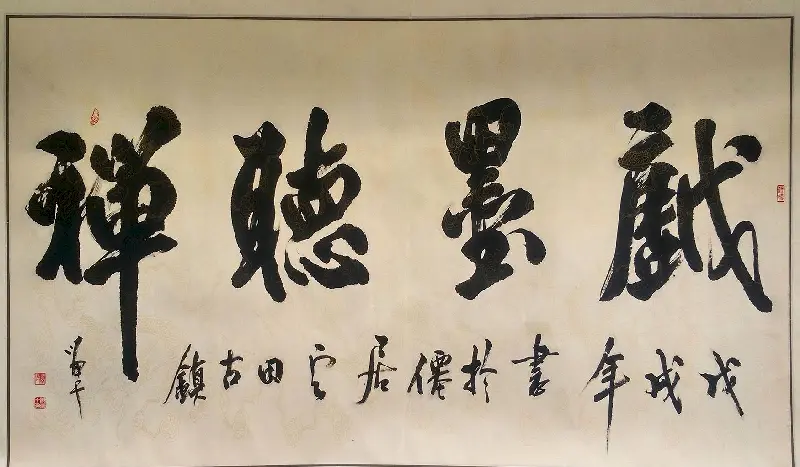 戲墨聽禪
戊戌年書於僊居田古鎮